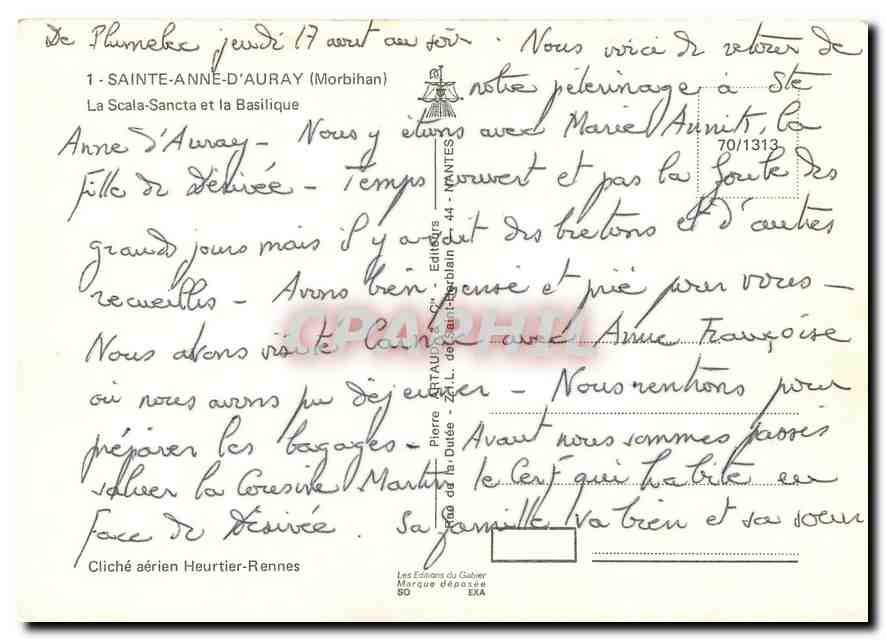 De Plumelec jeudi 17 aout au soir. Nous voici de retour de
1 - SAINTE-ANNE-D'AURAY (Morbihan)
notre pélerinage à Ste
La Scala-Sancta et la Basilique
Anne d'Auray - Nous y étions avec Marie Annik, la
70/1313
fille de Désirée - Temps couvert et pas la foule des
grands jours mais il y avait des bretons et d'autres
recueillis - Avons bien pensé et prié pour vous -
Nous avons visité Carnac avec Anne Françoise
où nous avons pu déjeuner - Nous rentrons pour
préparer les bagages - Avant nous sommes passés
saluer la Cousine Martin le Cerf qui habite en
face de Désirée. Sa famille va bien et sa soeur
Pierre ARTAUD & Cie - Editeurs
Rue de la Dutée - Z.I.L. de Saint-Herblain - 44 - NANTES
CPAPHIL
Cliché aérien Heurtier-Rennes
Les Editions du Gabier
Marque déposée
SO EXA